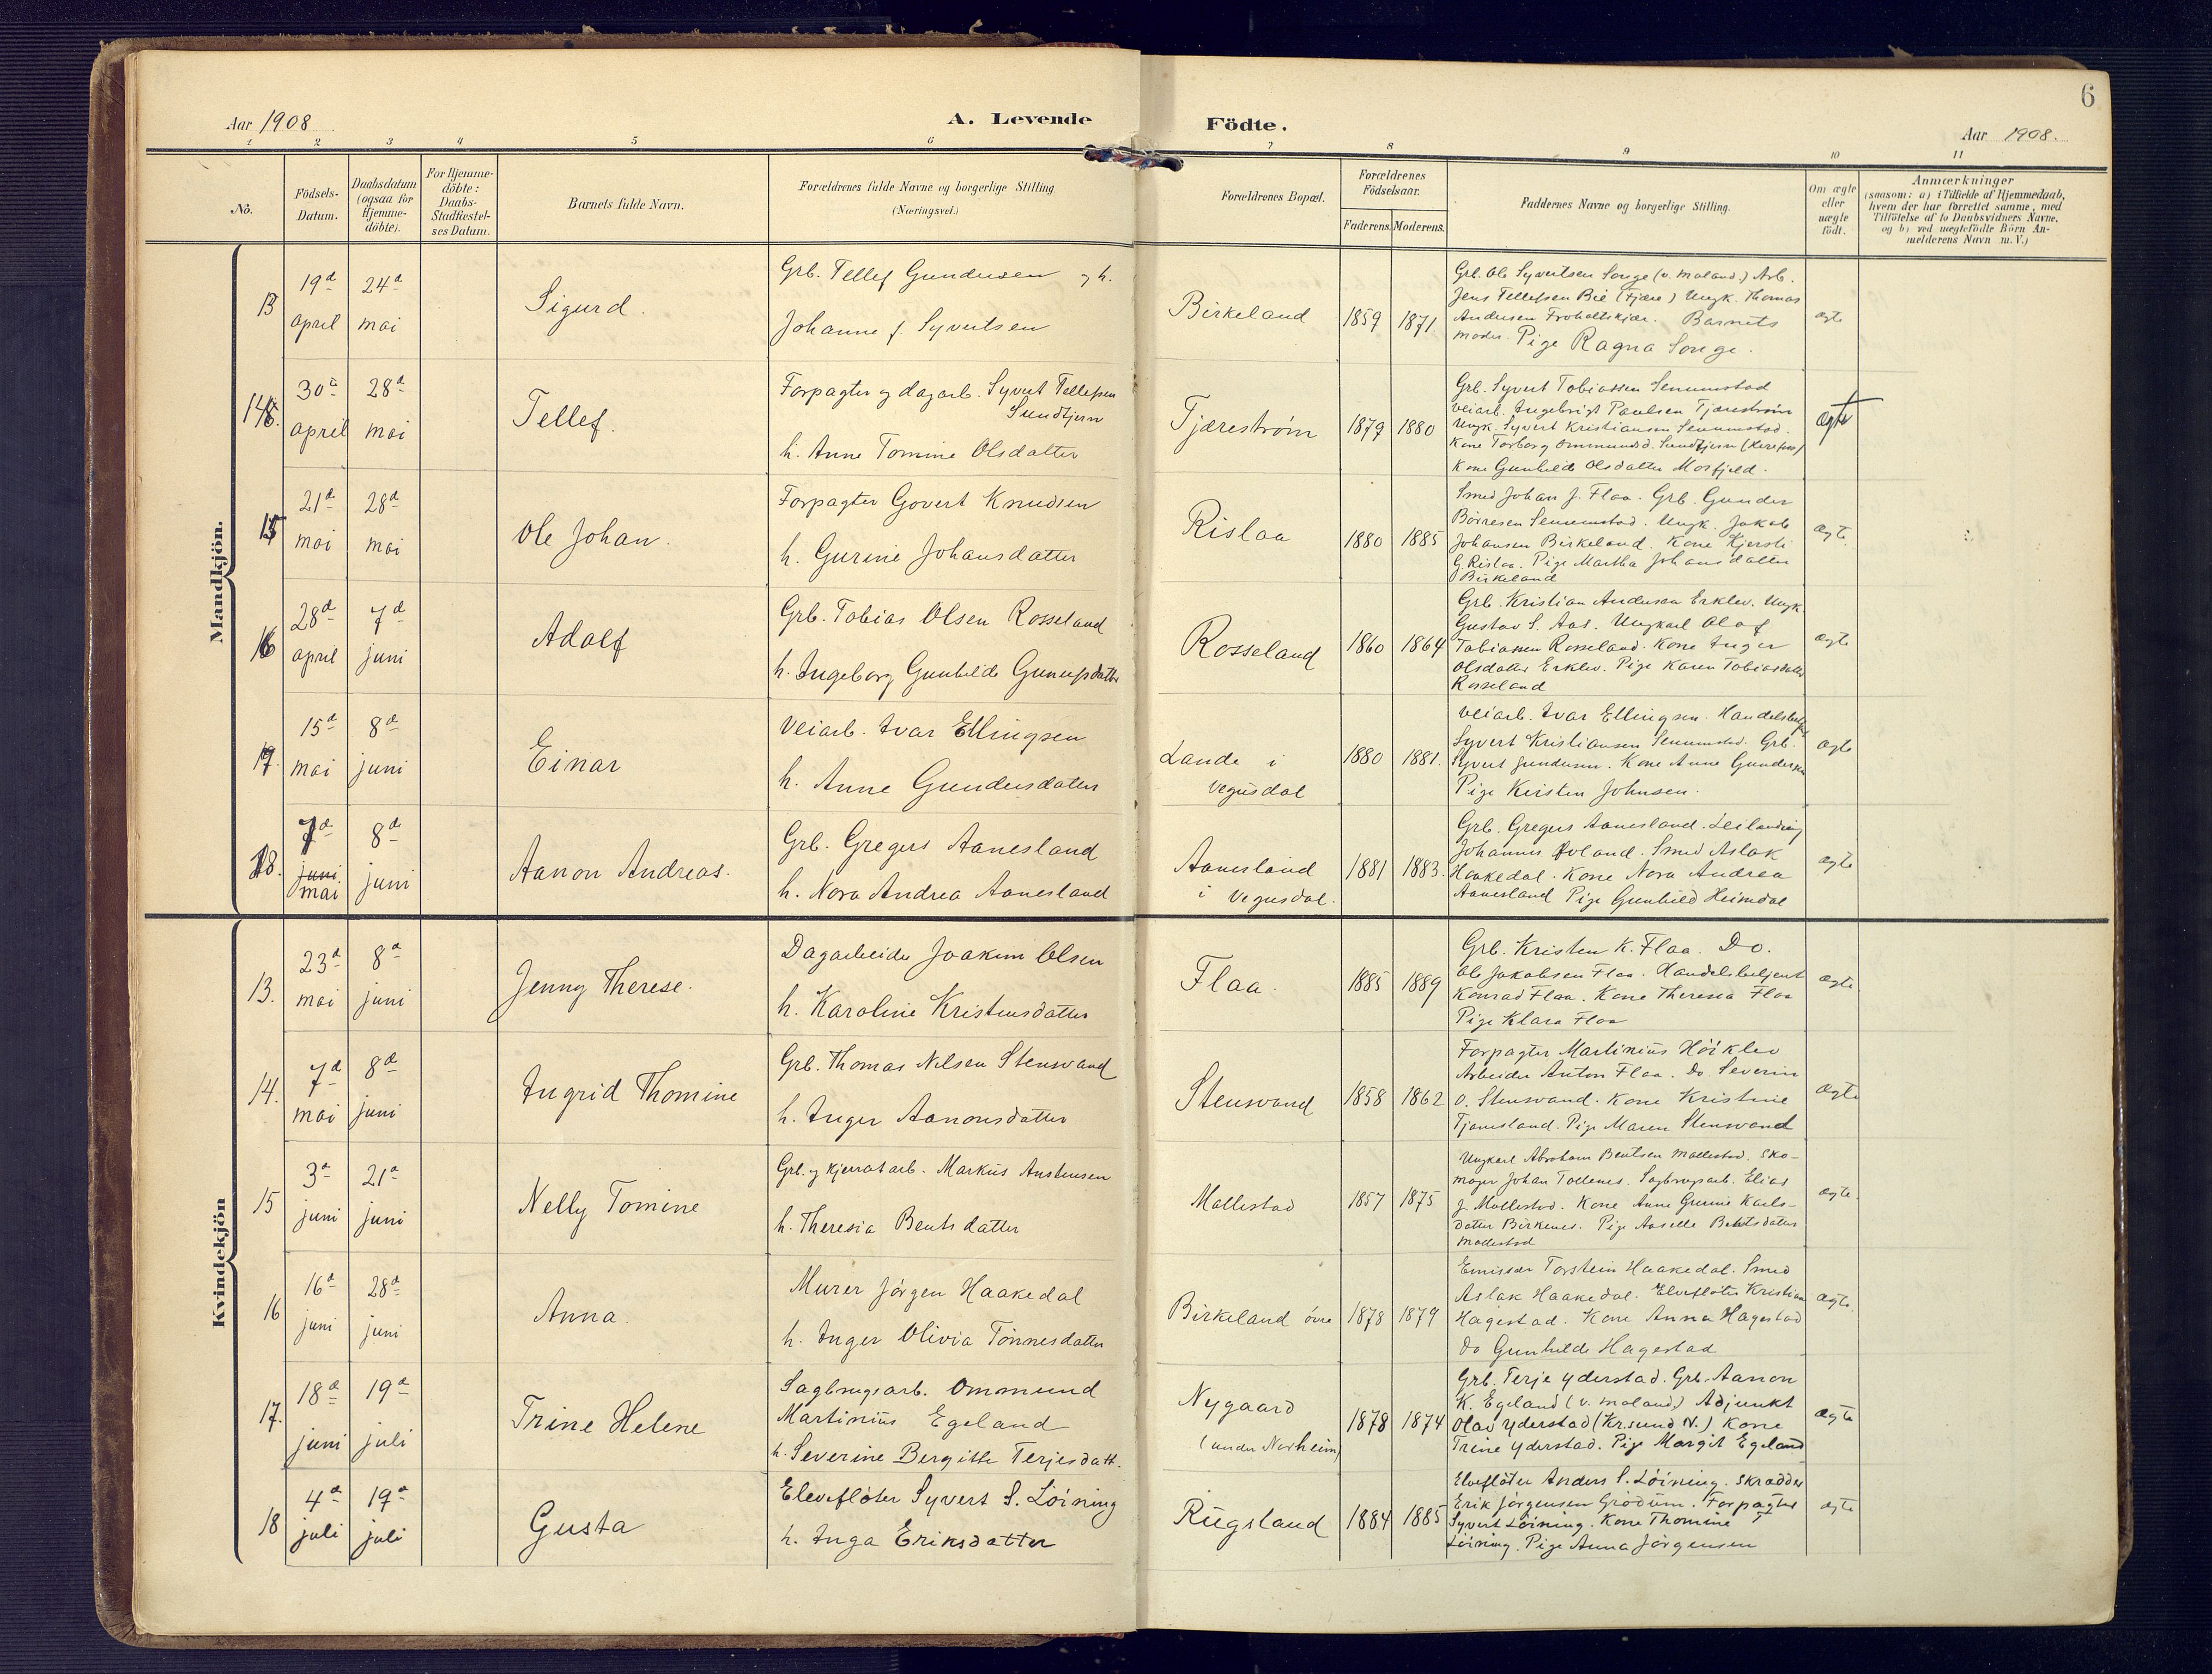 6
Aar 1908
A. Levende
Födte.
Aar 1908.
1 2 3 4 5 6 7 8 9 10 11
No.
Födsels-
Datum.
Daabsdatum
(ogsaa for
Hjemme-
döbte).
For Hjemme-
döbte:
Daabs-
Stadfæstel-
ses Datum.
Barnets fulde Navn.
Forældrenes fulde Navne og borgerlige Stilling.
(Næringsvei.)
Forældrenes Bopæl.
Forældrenes
Födselsaar.
Faderens. Moderens.
Faddernes Navne og borgerlige Stilling.
Om ægte
eller
uægte
födt.
Anmærkninger
(saasom: a) i Tilfælde af Hjemmedaab,
hvem der har forrettet samme, med
Tilföielse af to Daabsvidners Navne,
og b) ved uægtefödte Börn An-
melderens Navn m. V.)
Mandkjön.
13
19d april
24d mai
Sigurd.
Grb. Tellef Gundersen og h.
Johanne f. Syvertsen
Birkeland
1859 1871
Grb. Ole Syvertsen Songe (v. Moland.) Arb.
Jens Tellefsen Bie (Fjære) Ungk. Thomas
Andersen Froholtskjær. Barnets
moder. Pige Ragna Songe.
ægte
14.
30d april
28d mai
Tellef.
Forpagter og dagarb. Syvert Tellefsen
Sundtjern
h. Anne Tomine Olsdatter
Tjærestrøm
1879 1880
Grb. Syvert Tobiassen Senumstad
veiarb. Ingebrigt Paulsen Tjærestrøm
Ungk. Syvert Kristiansen Senumstad.
Kone Torborg Ommundsd. Sundtjern (Herefoss)
Kone Gunhilde Olsdatter Mosfjeld.
ægte
15
21d mai
28d mai
Ole Johan.
Forpagter Govert Knudsen
h. Gurine Johansdatter
Rislaa
1880 1885
Smed Johan J. Flaa. Grb. Gunder
Börresen Senumstad. Ungk. Jakob
Johansen Birkeland. Kone Kjersti
G. Rislaa. Pige Martha Johansdatter
Birkeland
ægte
16
28d april
7d juni
Adolf
Grb. Tobias Olsen Rosseland
h. Ingeborg Gunhilde Gunufsdatter
Rosseland
1860 1864
Grb. Kristian Andersen Erklev. Ungk.
Gustav S. Aas. Ungkarl Olaf
Tobiassen Rosseland. Kone Inger
Olsdatter Erklev. Pige Karen Tobiasdatter
Rosseland
ægte
17.
15d mai
8d juni
Einar
Veiarb. Ivar Ellingsen
h. Anne Gundersdatter
Lande i
Vegusdal
1880 1881.
Veiarb. Ivar Ellingsen. Handelsbetj.
Syvert Kristiansen Senumstad. Grb.
Syvert Gundersen. Kone Anne Gundersen
Pige Kirsten Johnsen.
ægte
18.
7d juni mai
8d juni
Aanon Andreas.
Grb. Gregers Aanesland
h. Nora Andrea Aanesland
Aanesland
i Vegusdal.
1881 1883.
Grb. Gregers Aanesland. Leilænding
Johannes Holand. Smed Aslak
Haakedal. Kone Nora Andrea
Aanesland Pige Gunhild Heimdal
ægte
Kvindekjön
13.
23d mai
8d juni
Jenny Therese.
Dagarbeider Joakim Olsen
h. Karoline Kristensdatter
Flaa.
1885 1889
Grb. Kristen K. Flaa. Do.
Ole Jakobsen Flaa. Handelsbetjent
Konrad Flaa. Kone Theresia Flaa
Pige Klara Flaa
ægte
14.
7d mai
8d juni
Ingrid Thomine
Grb. Thomas Nilsen Stensvand
h. Inger Aanonsdatter
Stensvand
1858 1862
Forpagter Martinius Höiklev
Arbeider Anton Flaa. Do. Severin
O. Stensvand. Kone Kristine
Tjomesland. Pige Maren Stensvand
ægte
15
3d juni
21d juni
Nelly Tomine
Grb. og kjerratarb. Markus Anstensen
h. Theresia Bentsdatter
Mollestad
1857 1875
Ungkarl Abraham Bentsen Mollestad. Sko-
mager Johan Tollenes. Sagbrugsarb. Elias
J. Mollestad. Kone Anne Gurine Karls-
datter Birkenes. Pige Aaselle Bentsdatter
Mollestad
ægte.
16
16d juni
28d juni
Anna.
Murer Jörgen Haakedal
h. Inger Olivia Tönnesdatter
Birkeland övre
1878 1879
Emissær Torstein Haakedal. Smed
Aslak Haakedal. Elvefløter Kristian
Hagestad. Kone Anna Hagestad
Do Gunhilde Hagestad
ægte.
17.
18d juni
19d juli
Trine Helene
Sagbrugsarb. Ommund
Martinius Egeland
h. Severine Bergitte Terjesdatt.
Nygaard
(under Norheim)
1878 1874
Grb. Terje Yderstad. Grb. Aanon
K. Egeland (v. Moland.) Adjunkt
Olav Yderstad (Kr.sund N.) Kone
Trine Yderstad. Pige Margit Egeland
ægte
18
4d juli
19d juli
Gusta
Elevefløter Syvert S. Löining
h. Inga Eriksdatter
Rugsland
1884 1885
Elvefløter Anders S. Löining. Skrædder
Erik Jörgensen Grödum. Forpagter
Syvert Löining. Kone Thomine T
Löining. Pige Anna Jörgensen
ægte